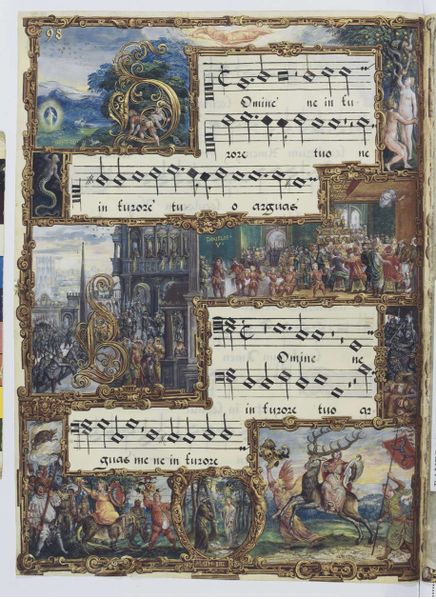 98
D Omine ne in fu
rore tuo ne
in furore tu o arguas
D Omine ne
in furore tuo ar
guas me ne in furore